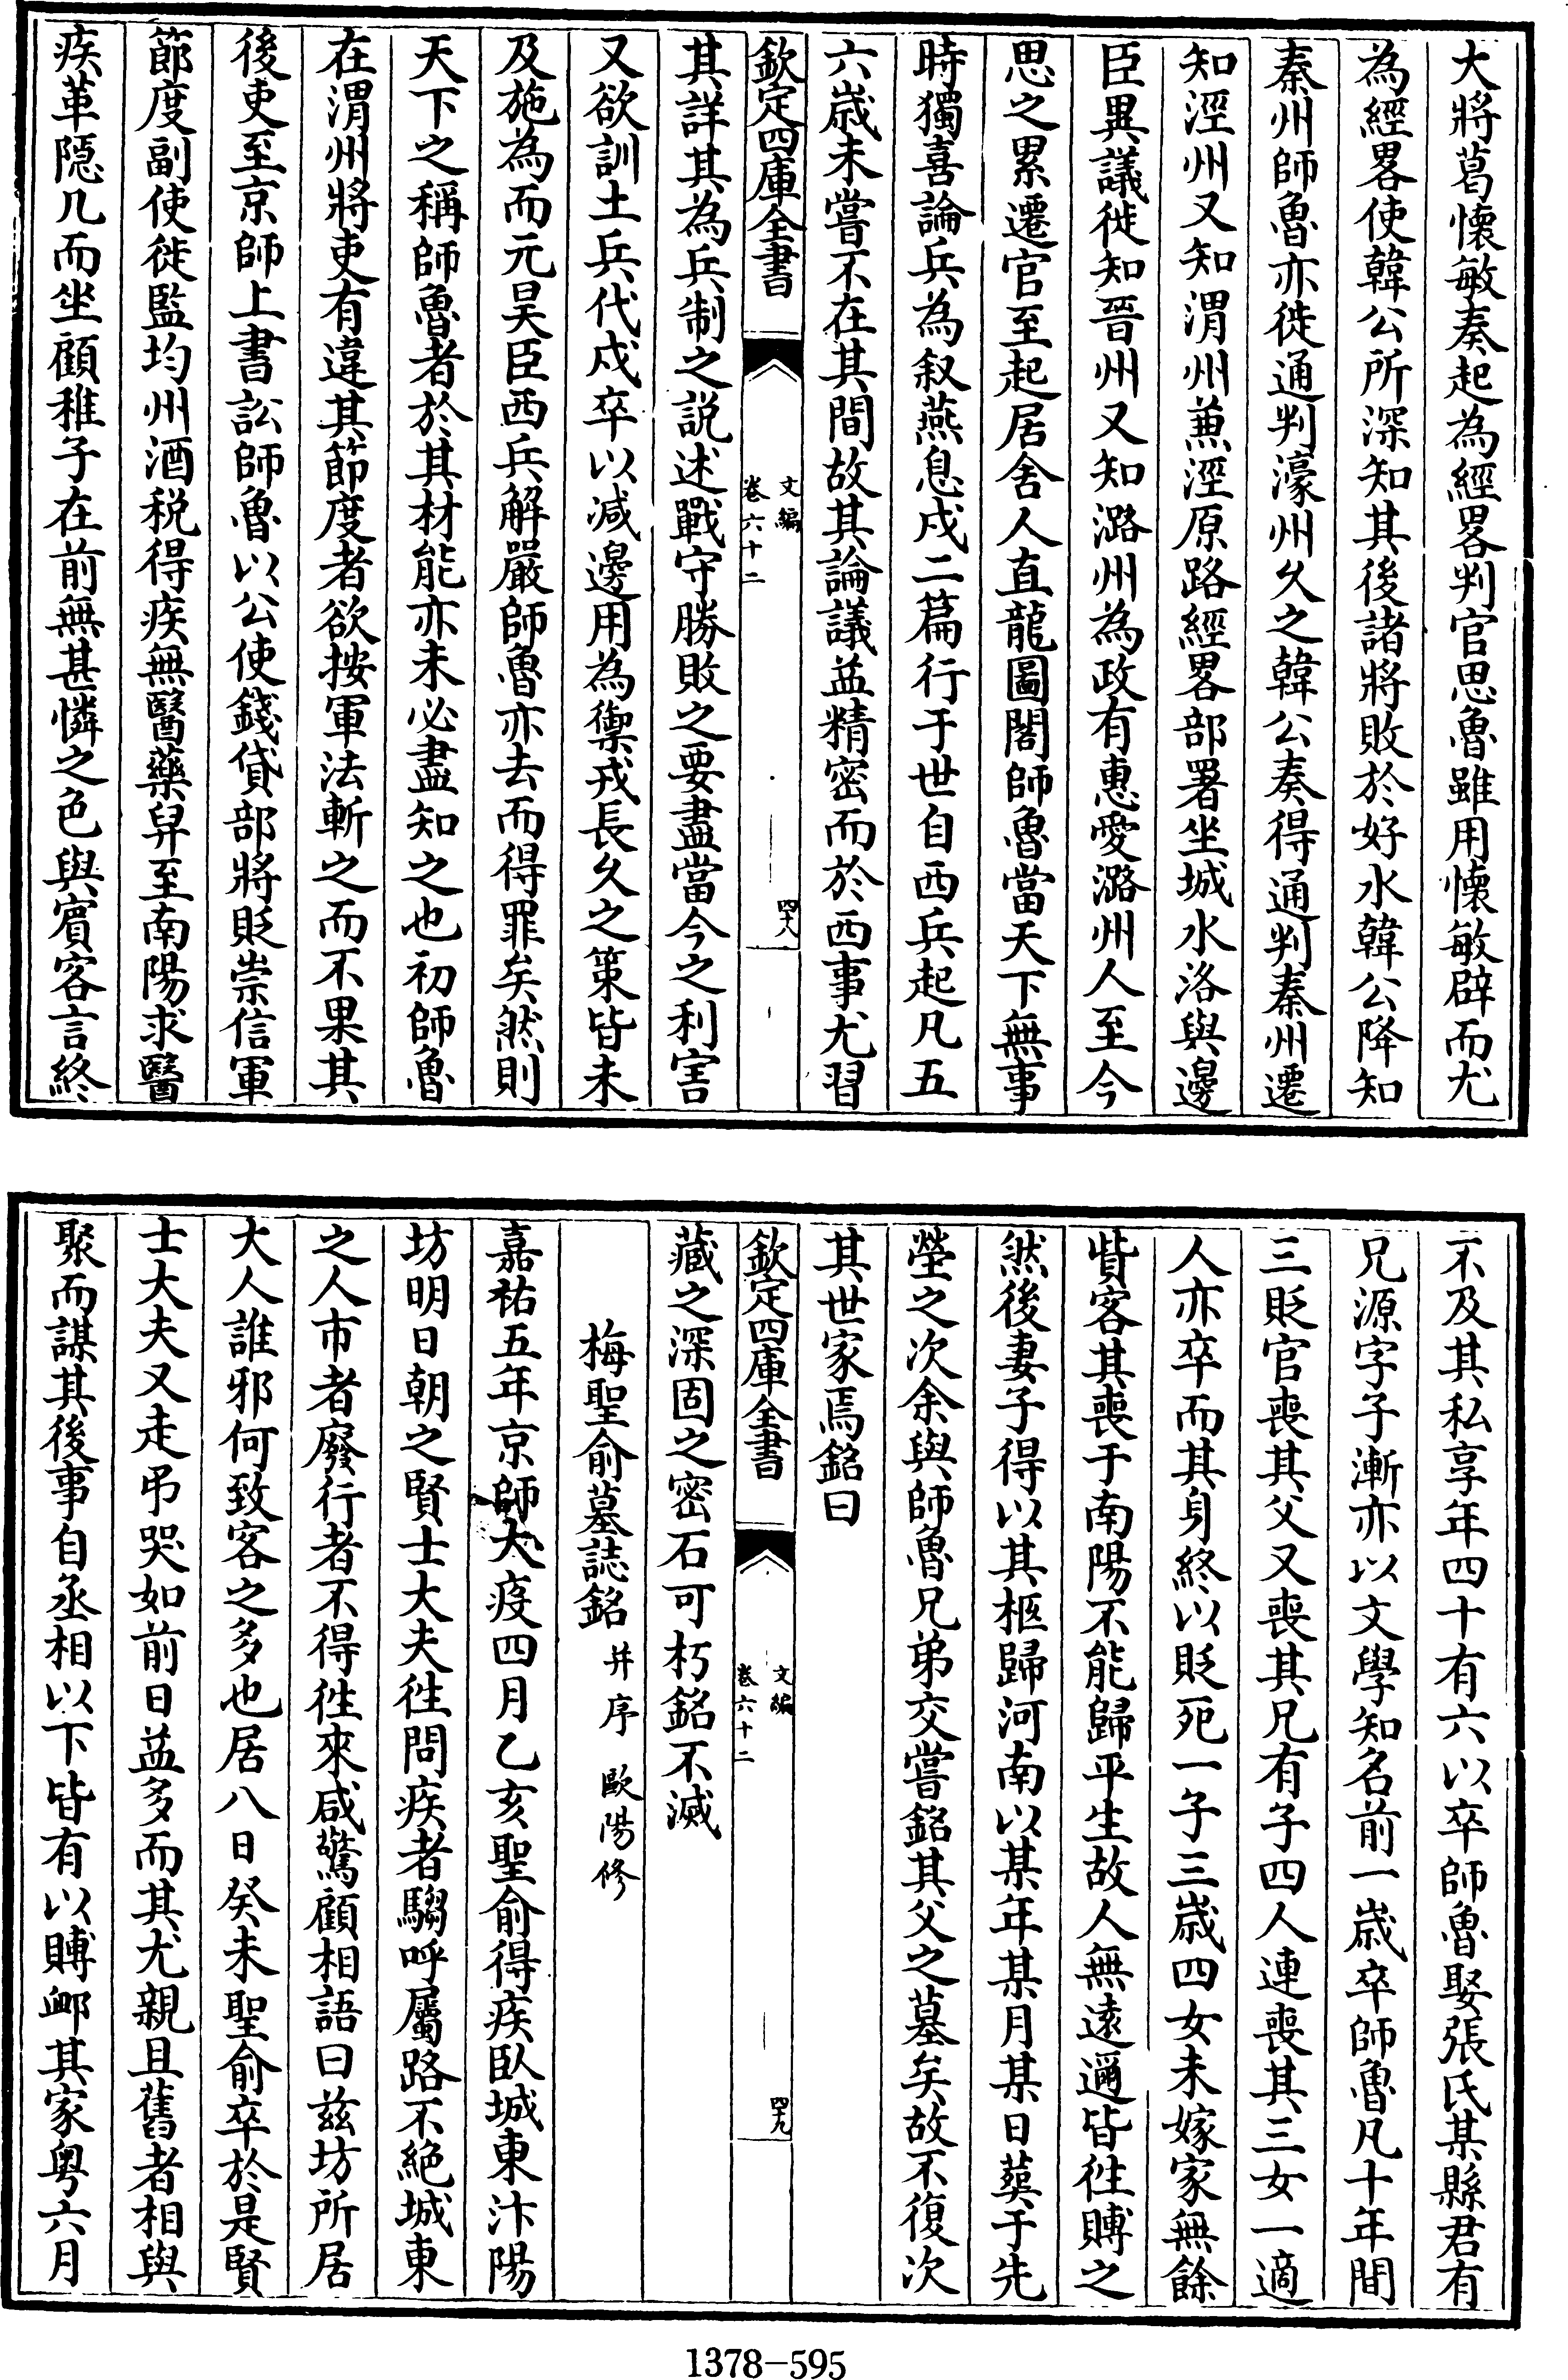 大將葛懷敏奏起為經畧判官思魯雖用懷敏辟而尤
為經畧使韓公所深知其後諸將敗於好水韓公降知
秦州師魯亦徙通判濠州乆之韓公奏得通判秦州遷
知涇州又知渭州兼涇原路經畧部署坐城水洛與邊
臣異議徙知晉州又知潞州為政有惠愛潞州人至今
思之累遷官至起居舍人直龍圖閣師魯當天下無事
時獨喜論兵為叙燕息戍二篇行于世自西兵起凡五
六歲未嘗不在其間故其論議益精密而於西事尤習
欽定四庫全書
文編
卷六十二
四十八
其詳其為兵制之説述戰守勝敗之要盡當今之利害
又欲訓土兵代戍卒以減邊用為禦戎長乆之策皆未
及施為而元昊臣西兵解嚴師魯亦去而得罪矣然則
天下之稱師魯者於其材能亦未必盡知之也初師魯
在渭州將吏有違其節度者欲按軍法斬之而不果其
後吏至京師上書訟師魯以公使錢貸部將貶崇信軍
節度副使徙監均州酒税得疾無醫藥舁至南陽求醫
疾革隠几而坐顧稚子在前無甚憐之色與賓客言終
不及其私享年四十有六以卒師魯娶張氏某縣君有
兄源字子漸亦以文學知名前一歲卒師魯凡十年間
三貶官喪其父又喪其兄有子四人連喪其三女一適
人亦卒而其身終以貶死一子三歲四女未嫁家無餘
貲客其喪于南陽不能歸平生故人無逺邇皆徃賻之
然後妻子得以其柩歸河南以某年某月某日葬于先
塋之次余與師魯兄弟交嘗銘其父之墓矣故不復次
其世家焉銘曰
欽定四庫全書
文編
卷六十二
四十九
藏之深固之密石可朽銘不滅
梅聖俞墓誌銘 并序 歐陽修
嘉祐五年京師大疫四月乙亥聖俞得疾臥城東汴陽
坊明日朝之賢士大夫徃問疾者騶呼屬路不絶城東
之人市者廢行者不得徃來咸驚顧相語曰兹坊所居
大人誰邪何致客之多也居八日癸未聖俞卒於是賢
士大夫又走弔哭如前日益多而其尤親且舊者相與
聚而謀其後事自丞相以下皆有以賻䘏其家粤六月
1378-595